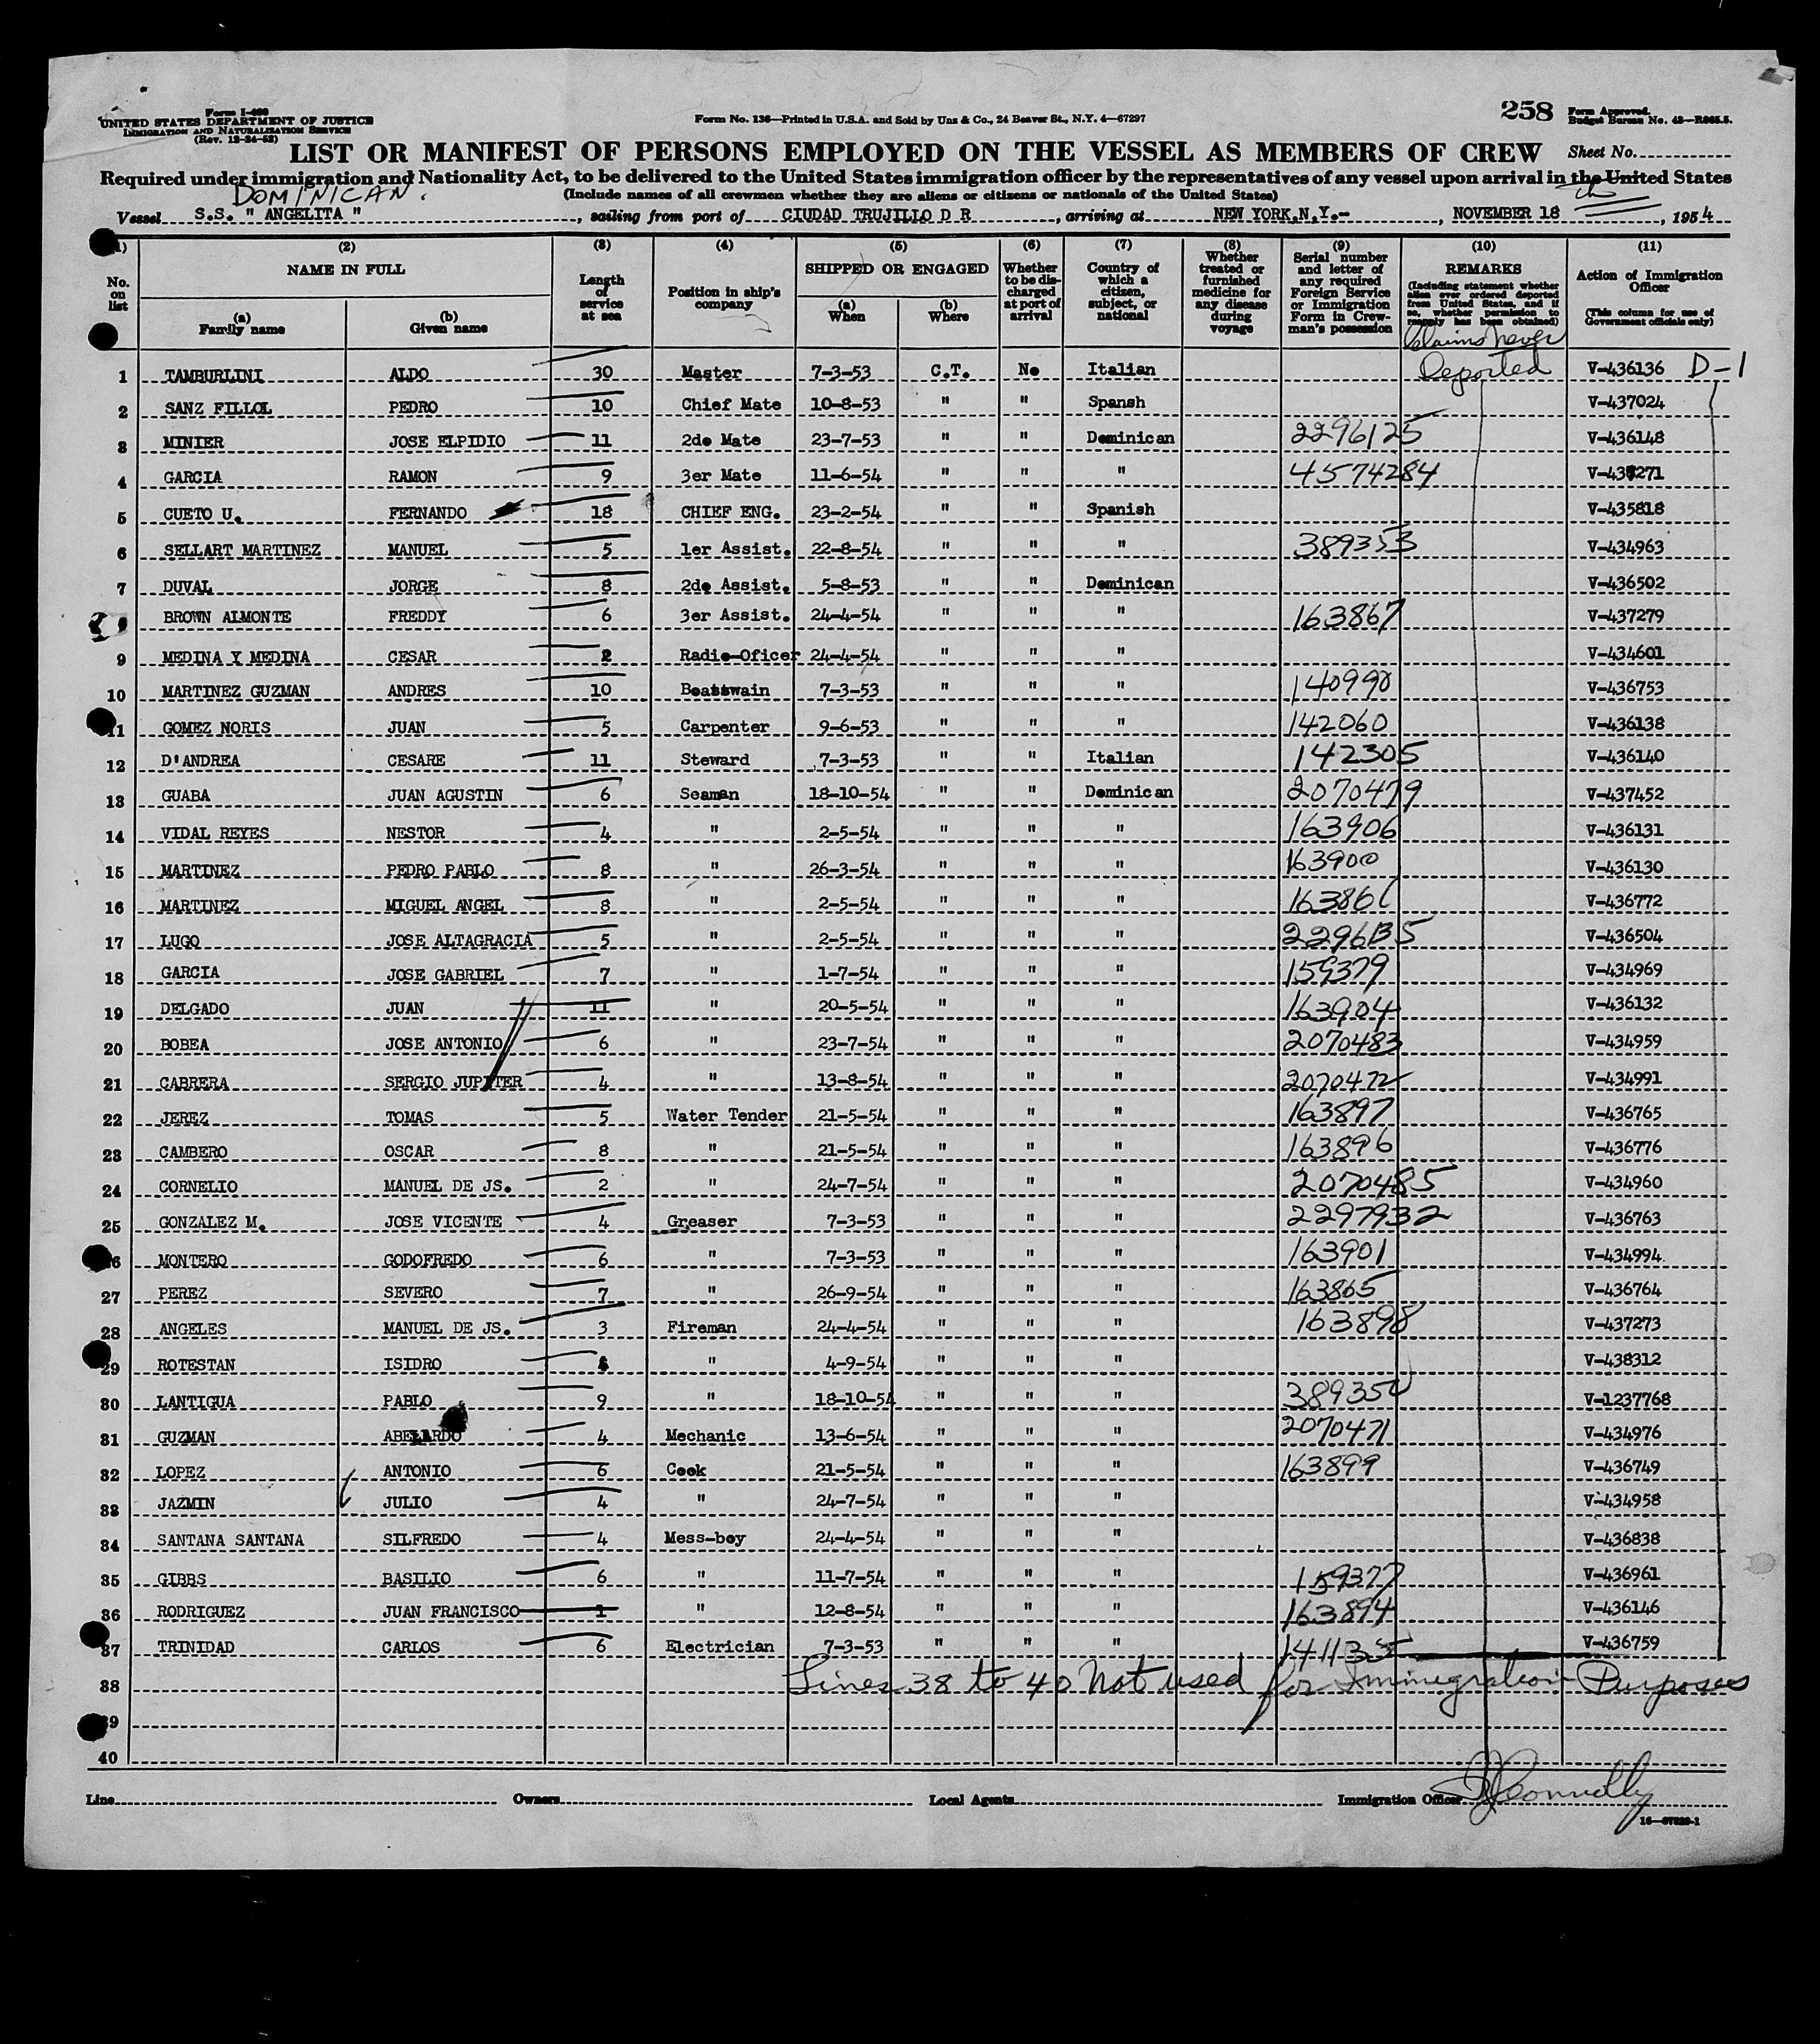 Form I-480
UNITED STATES DEPARTMENT OF JUSTICE
IMMIGRATION AND NATURALIZATION SERVICE
(Rev. 12-24-52)
Form No. 136—Printed in U.S.A. and Sold by Unz & Co., 24 Beaver St., N.Y. 4—67297
258 Form Approved.
Budget Bureau No. 43—R065.5.
LIST OR MANIFEST OF PERSONS EMPLOYED ON THE VESSEL AS MEMBERS OF CREW Sheet No.
Required under immigration and Nationality Act, to be delivered to the United States immigration officer by the representatives of any vessel upon arrival in the United States
DOMINICAN. (Include names of all crewmen whether they are aliens or citizens or nationals of the United States)
Vessel S.S. " ANGELITA ", sailing from port of CIUDAD TRUJILLO D R, arriving at NEW YORK,N,Y.-, NOVEMBER 18, 1954
(1) (2) (3) (4) (5) (6) (7) (8) (9) (10) (11)
No. on list
NAME IN FULL
(a) Family name
(b) Given name
Length of service at sea
Position in ship's company
SHIPPED OR ENGAGED
(a) When
(b) Where
Whether to be discharged at port of arrival
Country of which a citizen, subject, or national
Whether treated or furnished medicine for any disease during voyage
Serial number and letter of any required Foreign Service or Immigration Form in Crewman's possession
REMARKS
(Including statement whether alien ever ordered deported from United States, and if so, whether permission to reapply has been obtained)
Action of Immigration Officer
(This column for use of Government officials only)
Claims Never
1 TAMBURLINI ALDO 30 Master 7-3-53 C.T. No Italian Deported V-436136 D-1
2 SANZ FILLOL PEDRO 10 Chief Mate 10-8-53 " " Spansh V-437024
3 MINIER JOSE ELPIDIO 11 2do Mate 23-7-53 " " Dominican 2296125 V-436148
4 GARCIA RAMON 9 3er Mate 11-6-54 " " " 4574284
5 CUETO U. FERNANDO 18 CHIEF ENG. 23-2-54 " " Spanish V-435818
6 SELLART MARTINEZ MANUEL 5 1er Assist. 22-8-54 " " " 389353 V-434963
7 DUVAL JORGE 8 2do Assist. 5-8-53 " " Dominican V-436502
BROWN ALMONTE FREDDY 6 3er Assist. 24-4-54 " " " 163867 V-437279
9 MEDINA Y MEDINA CESAR 2 Radio-Oficer 24-4-54 " " " V-434601
10 MARTINEZ GUZMAN ANDRES 10 Boatswain 7-3-53 " " " 140990 V-436753
11 GOMEZ NORIS JUAN 5 Carpenter 9-6-53 " " " 142060 V-436138
12 D'ANDREA CESARE 11 Steward 7-3-53 " " Italian 142305 V-436140
13 GUABA JUAN AGUSTIN 6 Seaman 18-10-54 " " Dominican 2070479 V-437452
14 VIDAL REYES NESTOR 4 " 2-5-54 " " " 163906 V-436131
15 MARTINEZ PEDRO PABLO 8 " 26-3-54 " " " 163900 V-436130
16 MARTINEZ MIGUEL ANGEL 8 " 2-5-54 " " " V-436772
17 LUGO JOSE ALTAGRACIA 5 " 2-5-54 " " " V-436504
18 GARCIA JOSE GABRIEL 7 " 1-7-54 " " " 159379 V-434969
19 DELGADO JUAN 11 " 20-5-54 " " " 163904 V-436132
20 BOBEA JOSE ANTONIO 6 " 23-7-54 " " " 2070483 V-434959
21 CABRERA SERGIO JUPITER 4 " 13-8-54 " " " 2070472 V-434991
22 JEREZ TOMAS 5 Water Tender 21-5-54 " " " 163897 V-436765
23 CAMBERO OSCAR 8 " 21-5-54 " " " 163896 V-436776
24 CORNELIO MANUEL DE JS. 2 " 24-7-54 " " " 2070485 V-434960
25 GONZALEZ M. JOSE VICENTE 4 Greaser 7-3-53 " " " 2297932 V-436763
26 MONTERO GODOFREDO 6 " 7-3-53 " " " 163901 V-434994
27 PEREZ SEVERO 7 " 26-9-54 " " " 163865 V-436764
28 ANGELES MANUEL DE JS. 3 Fireman 24-4-54 " " " 163898 V-437273
29 ROTESTAN ISIDRO " 4-9-54 " " " V-438312
30 LANTIGUA PABLO 9 " 18-10-54 " " " 389350 V-1237768
31 GUZMAN ABELARDO 4 Mechanic 13-6-54 " " " 2070471 V-434976
32 LOPEZ ANTONIO 6 Cook 21-5-54 " " " 163899 V-436749
33 JAZMIN JULIO 4 " 24-7-54 " " " V-434958
34 SANTANA SANTANA SILFREDO 4 Mess-boy 24-4-54 " " " V-436838
35 GIBBS BASILIO 6 " 11-7-54 " " " 159377 V-436961
36 RODRIGUEZ JUAN FRANCISCO 1 " 12-8-54 " " " 163894 V-436146
37 TRINIDAD CARLOS 6 Electrician 7-3-53 " " " 141135 V-436759
38 Lines 38 to 40 Not used for Immigration Purposes
39
40
Line Owners Local Agents Immigration Officer Connolly